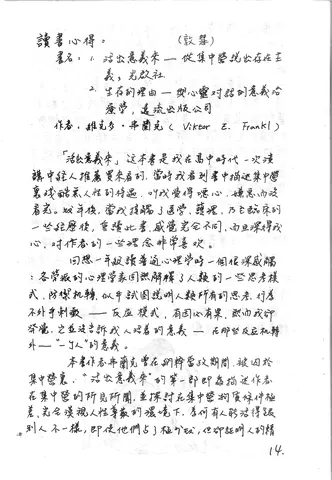 讀書心得： (敦慧)
書名：1. 活出意義來——從集中營說出存在主
義，光啟社
2. 生存的理由——與心靈對話的意義治
療學，遠流出版公司
作者：維克多·弗蘭克( Viktor E. Frankl)
「活出意義來」這本書是我在高中時代一次演
講中經人推薦買來看的，當時我看到書中描述集中營
裏殘酷不人性的待遇，叫我覺得噁心，嫌惡而沒
看完。數年後，當我接觸了醫學、護理，乃至臨床的
一些經歷後，重讀此書，感覺完全不同，而且深得我
心，對作者的一些理念非常喜歡。
回想一年級讀普通心理學時一個很深感觸
：各學派的心理學家固然解釋了人類的一些思考模
式，防衛機轉，似乎試圖說明人類所有的思考、行為
不外乎刺激——反應模式，有因必有果，然而我卻
發覺，
告訴我人活著的意義——在那些反應機轉
外——“一個人”的意義。
本書作者弗蘭克曾在納粹當政期間，被囚於
集中營裏，“活出意義來”的第一部即為描述作者
在集中營的所見所聞，並探討在集中營物質條件極
差、完全漠視人性尊嚴的環境下，為何有人能活得跟
別人不一樣，即使他們占了極少數，但卻証明人的精
14.